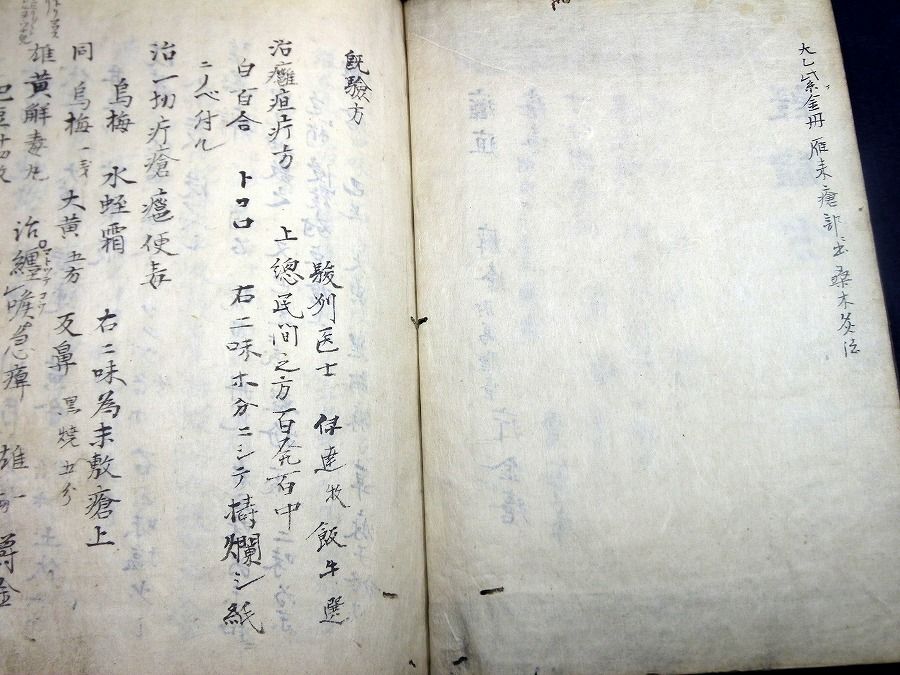 太乙紫金丹 雁来瘡部出 桑木灸法
既驗方
駿州医士 伊達牧 飯牛選
治癰疽疔方 上總民間之方百発百中
白百合 トコロ 右二味ホ分ニシテ擣爛シ紙
ニノベ付ル
治一切疔瘡癰便毒
烏梅 水蛭霜 右二味為末敷瘡上
同 烏梅一戔 大黄五分 反鼻黒燒五分
雄黄解毒丸 治纏喉急痺 雄 一 欝金
巴豆十四枚